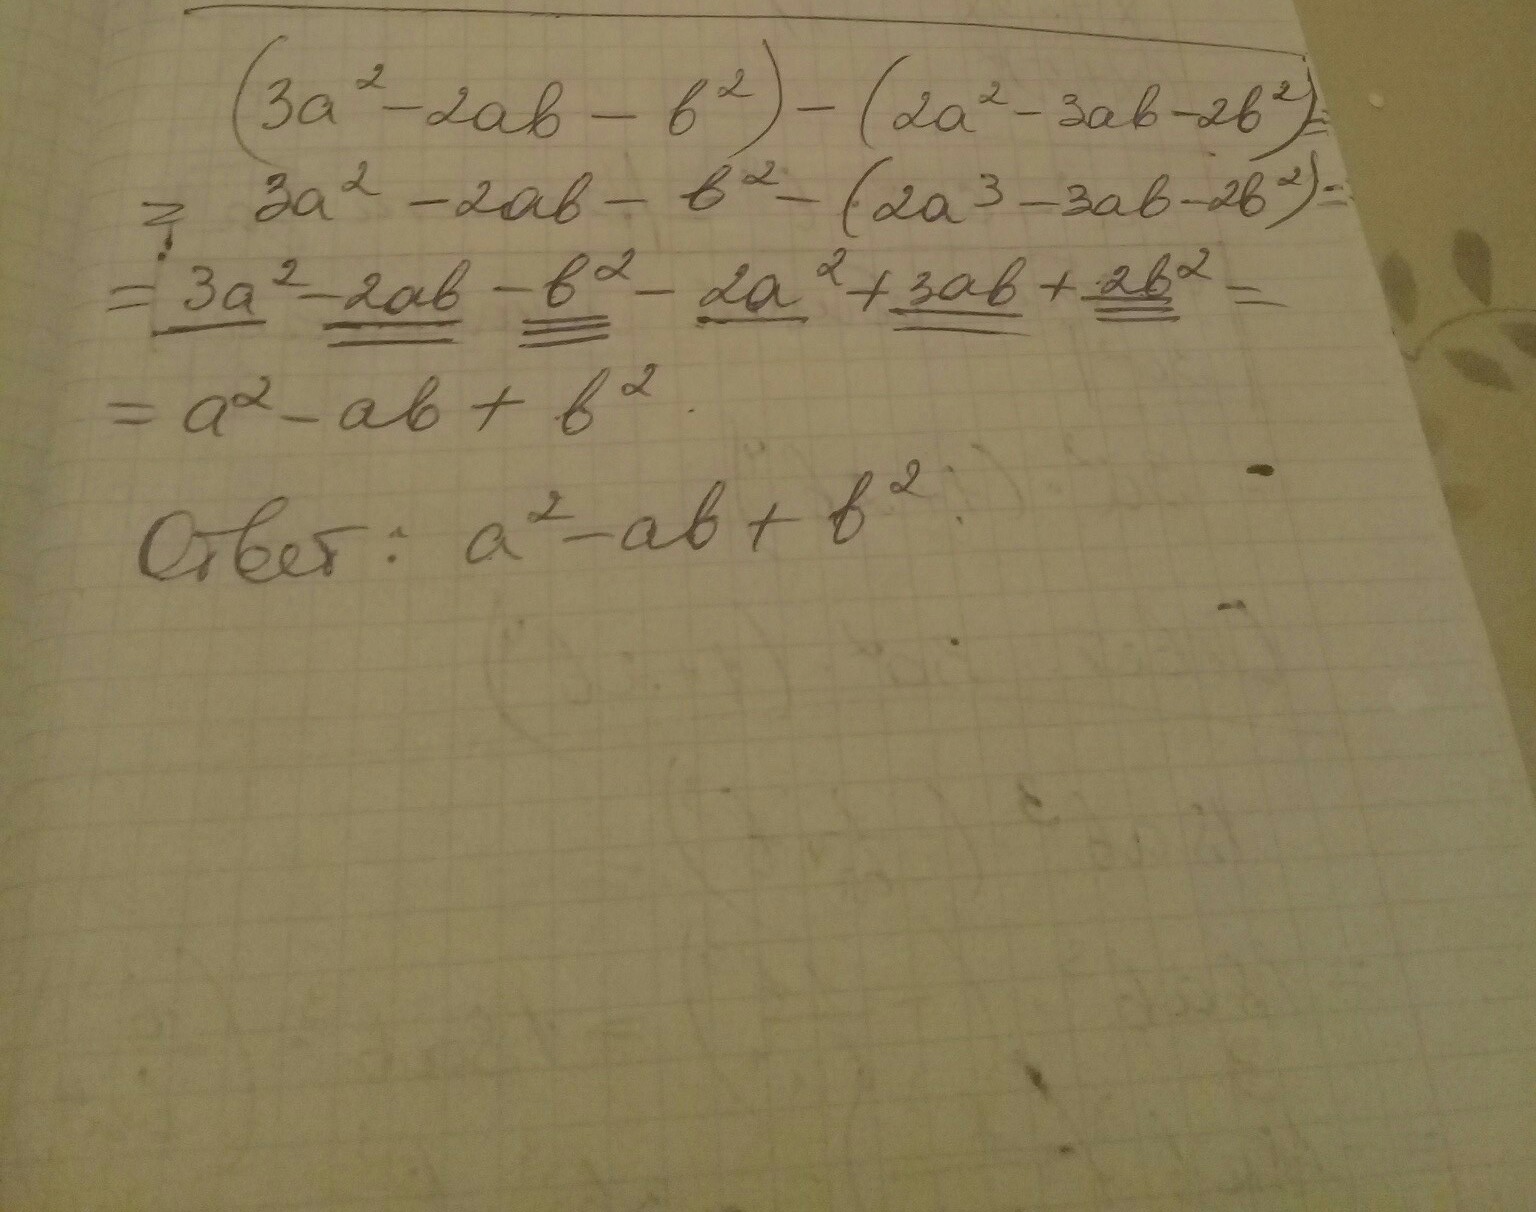 (3a² - 2ab - b²) - (2a² - 3ab - 2b²) =
= 3a² - 2ab - b² - (2a³ - 3ab - 2b²) =
= 3a² - 2ab - b² - 2a² + 3ab + 2b² =
= a² - ab + b².
Ответ: a² - ab + b².